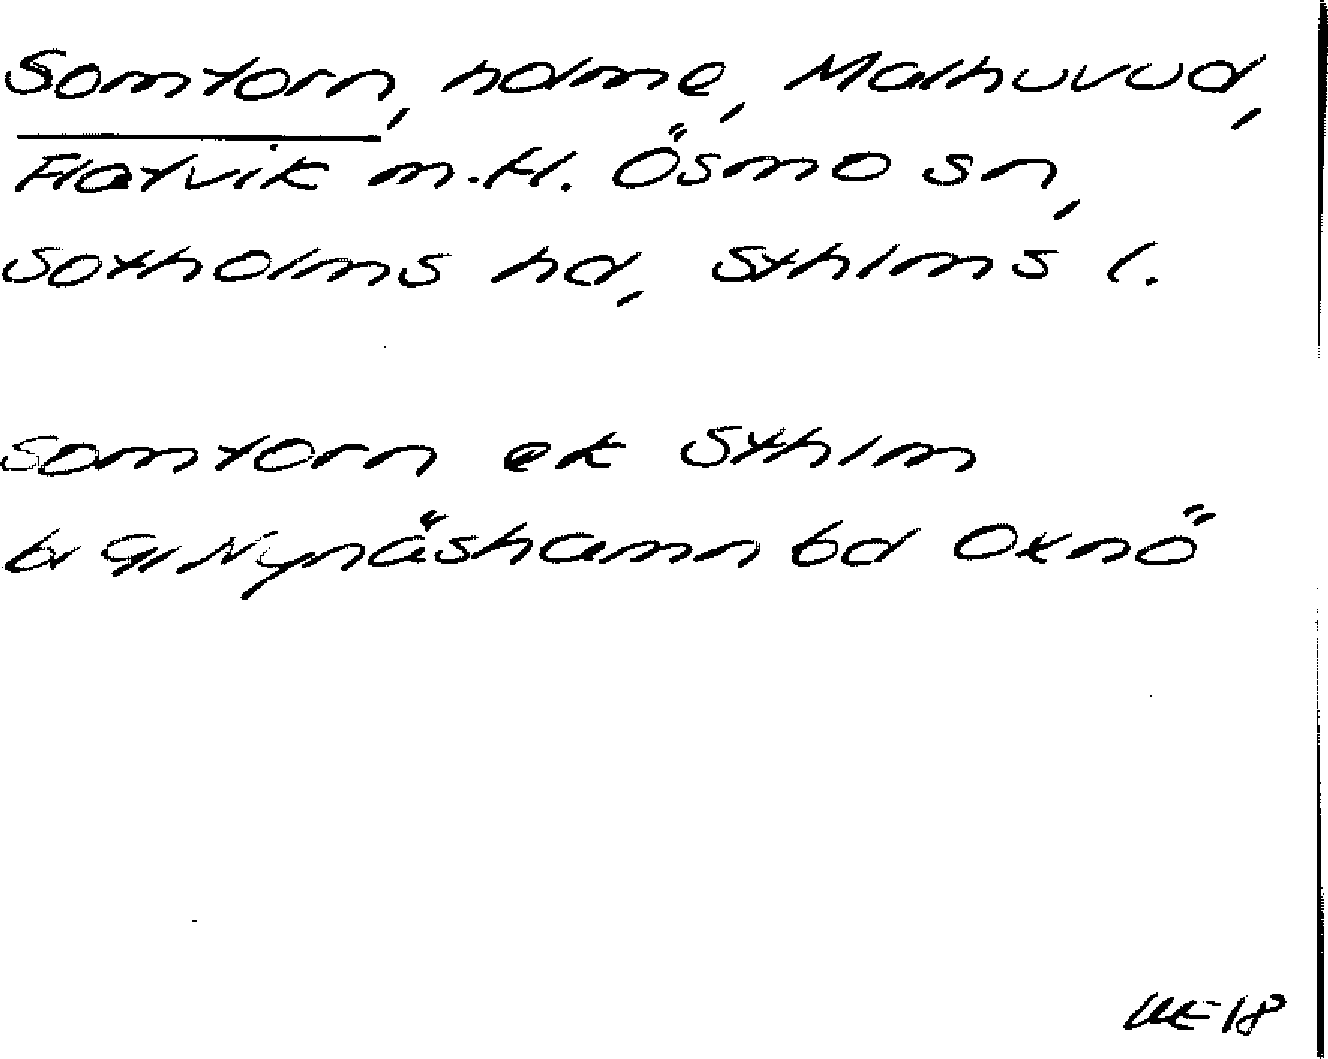 Somtorn, holme, Malhuvud,
Flatvik m.fl. Ösmo sn,
Sotholms hd, Sthlms l.
Somtorn ek Sthlm
bl Gl Nynäshamn bd Oxnö